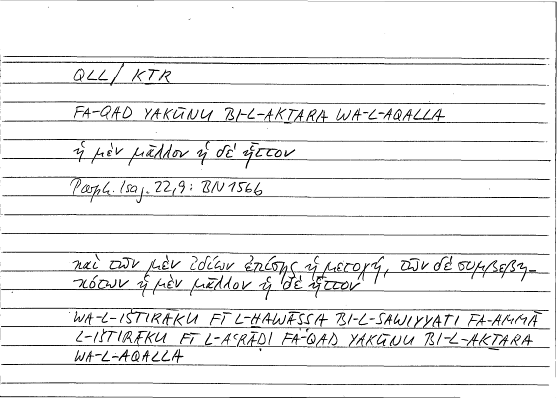 QLL/ KṮR
FA-QAD YAKŪNU BI-L-AKṮARA WA-L-AQALLA
ἡ μὲν μᾶλλον ἡ δὲ ἧττον
Porph. Isag. 22,9: BN 1566
καὶ τῶν μὲν ἰδίων ἐπίσης ἡ μετοχή, τῶν δὲ συμβεβη-
κότων ἡ μὲν μᾶλλον ἡ δὲ ἧττον
WA-L-IŠTIRĀKU FĪ L-ḪAWĀṢṢA BI-L-SAWIYYATI FA-AMMĀ
L-IŠTIRĀKU FĪ L-AʿRĀḌI FA-QAD YAKŪNU BI-L-AKṮARA
WA-L-AQALLA